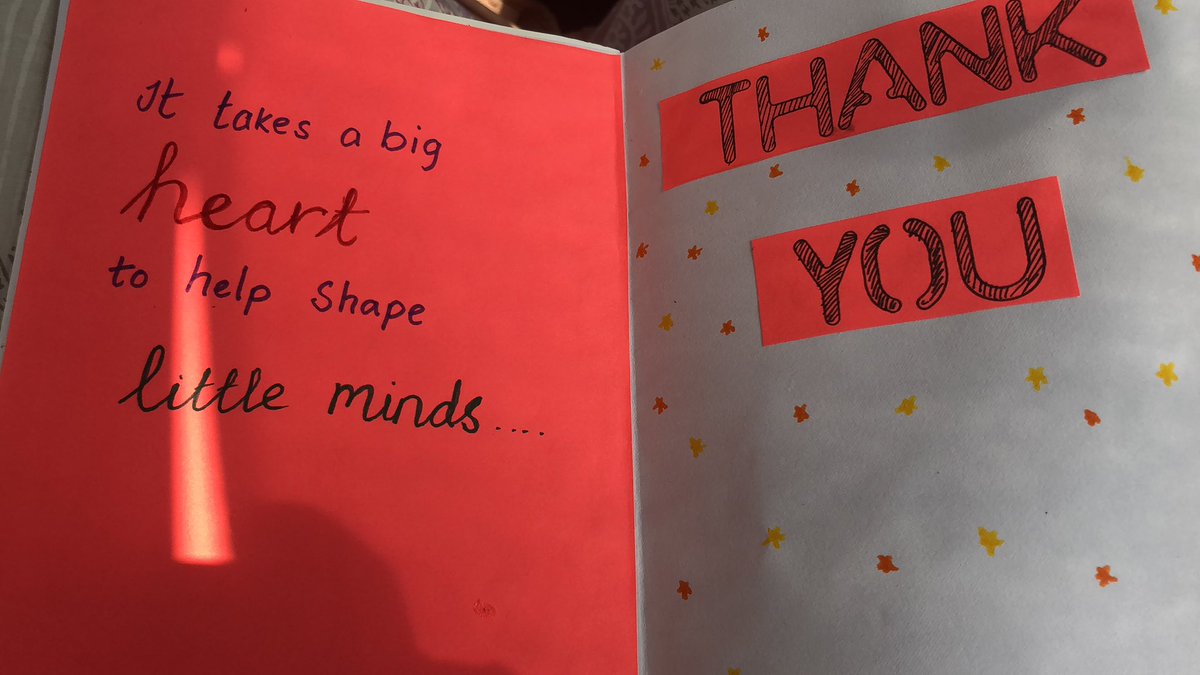 It takes a big
heart
to help shape
little minds....
THANK
YOU